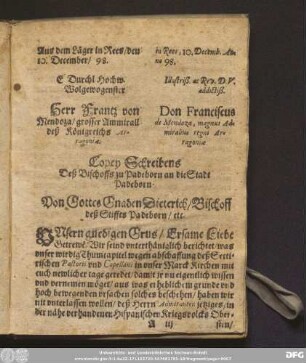 Aus dem Läger in Rees/den
10. December/ 98.
in Rees, 10. Decemb. An-
no 98.
E Durchl Hochw.
Wolgewogenster
Illustriss. ac Rev. D.V.
addictiss.
Herr Frantz von
Mendoza/grosser Ammirall
deß Königreichs Ar-
ragoniæ.
Don Franciscus
de Mendoza, magnus Ad-
mirabius regni Ar-
ragoniæ
Copey Schreibens
Deß Bischoffs zu Padeborn an die Stadt
Padeborn
Von Gottes Gnaden Dieterich/ Bischoff
deß Stifftes Padeborn/ etc.
UNsern gnedigen Grus/ Ersame Liebe
Getrewe/ Wir seind unterthäniglich berichtet/was
unser wirdig Thumcapitel wegen abschaffung deß Setti-
rischen Pastorn und Capellans in unser Marck Kirchen mit
euch newlicher tage geredet/ damit ir nu eigentlich wissen
und vernemen möget/ aus was erheblichem grunde und
hoch bewegenden ursachen solches beschehen/ haben wir
nit unterlassen wollen/ deß Herrn Admirantis jetziges/ in
der nähe verhandenen Hispanischen Kriegsvolcks Ober-
A iij
sten/